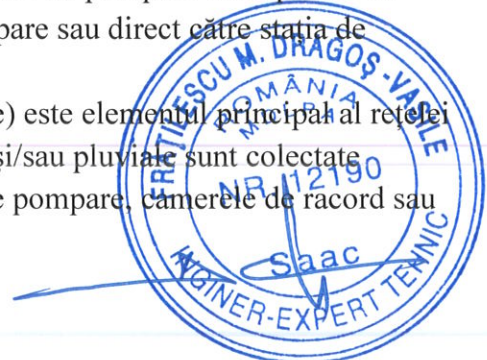 pare sau direct către stația de
e) este elementul principal al rețelei
și/sau pluviale sunt colectate
e pompare, camerele de racord sau
FRĂȚILESCU M. DRAGOȘ-VASILE
ROMÂNIA
NR. 12190
Saac
INGINER-EXPERT TEHNIC